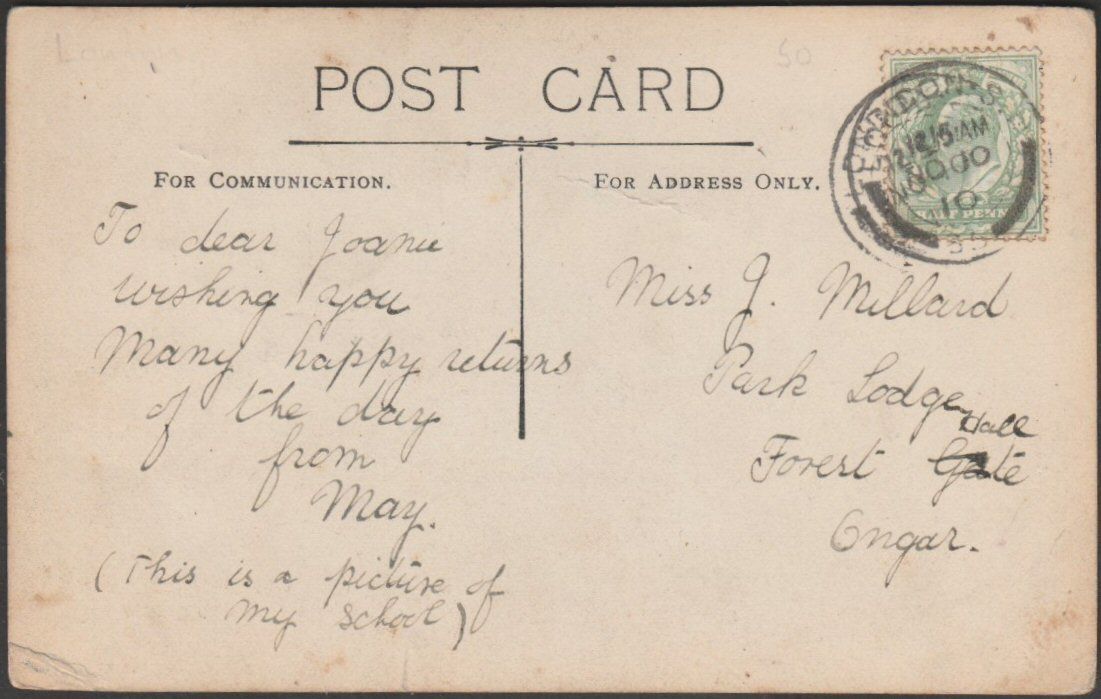 50
POST CARD
FOR COMMUNICATION.
FOR ADDRESS ONLY.
To dear Joanie
wishing you
Many happy returns
of the day
from
May.
(This is a picture of
my school)
Miss J. Millard
Park Lodge
Hall
Forest Gate
Ongar.
12.15 AM
NO
10
HALF PENNY